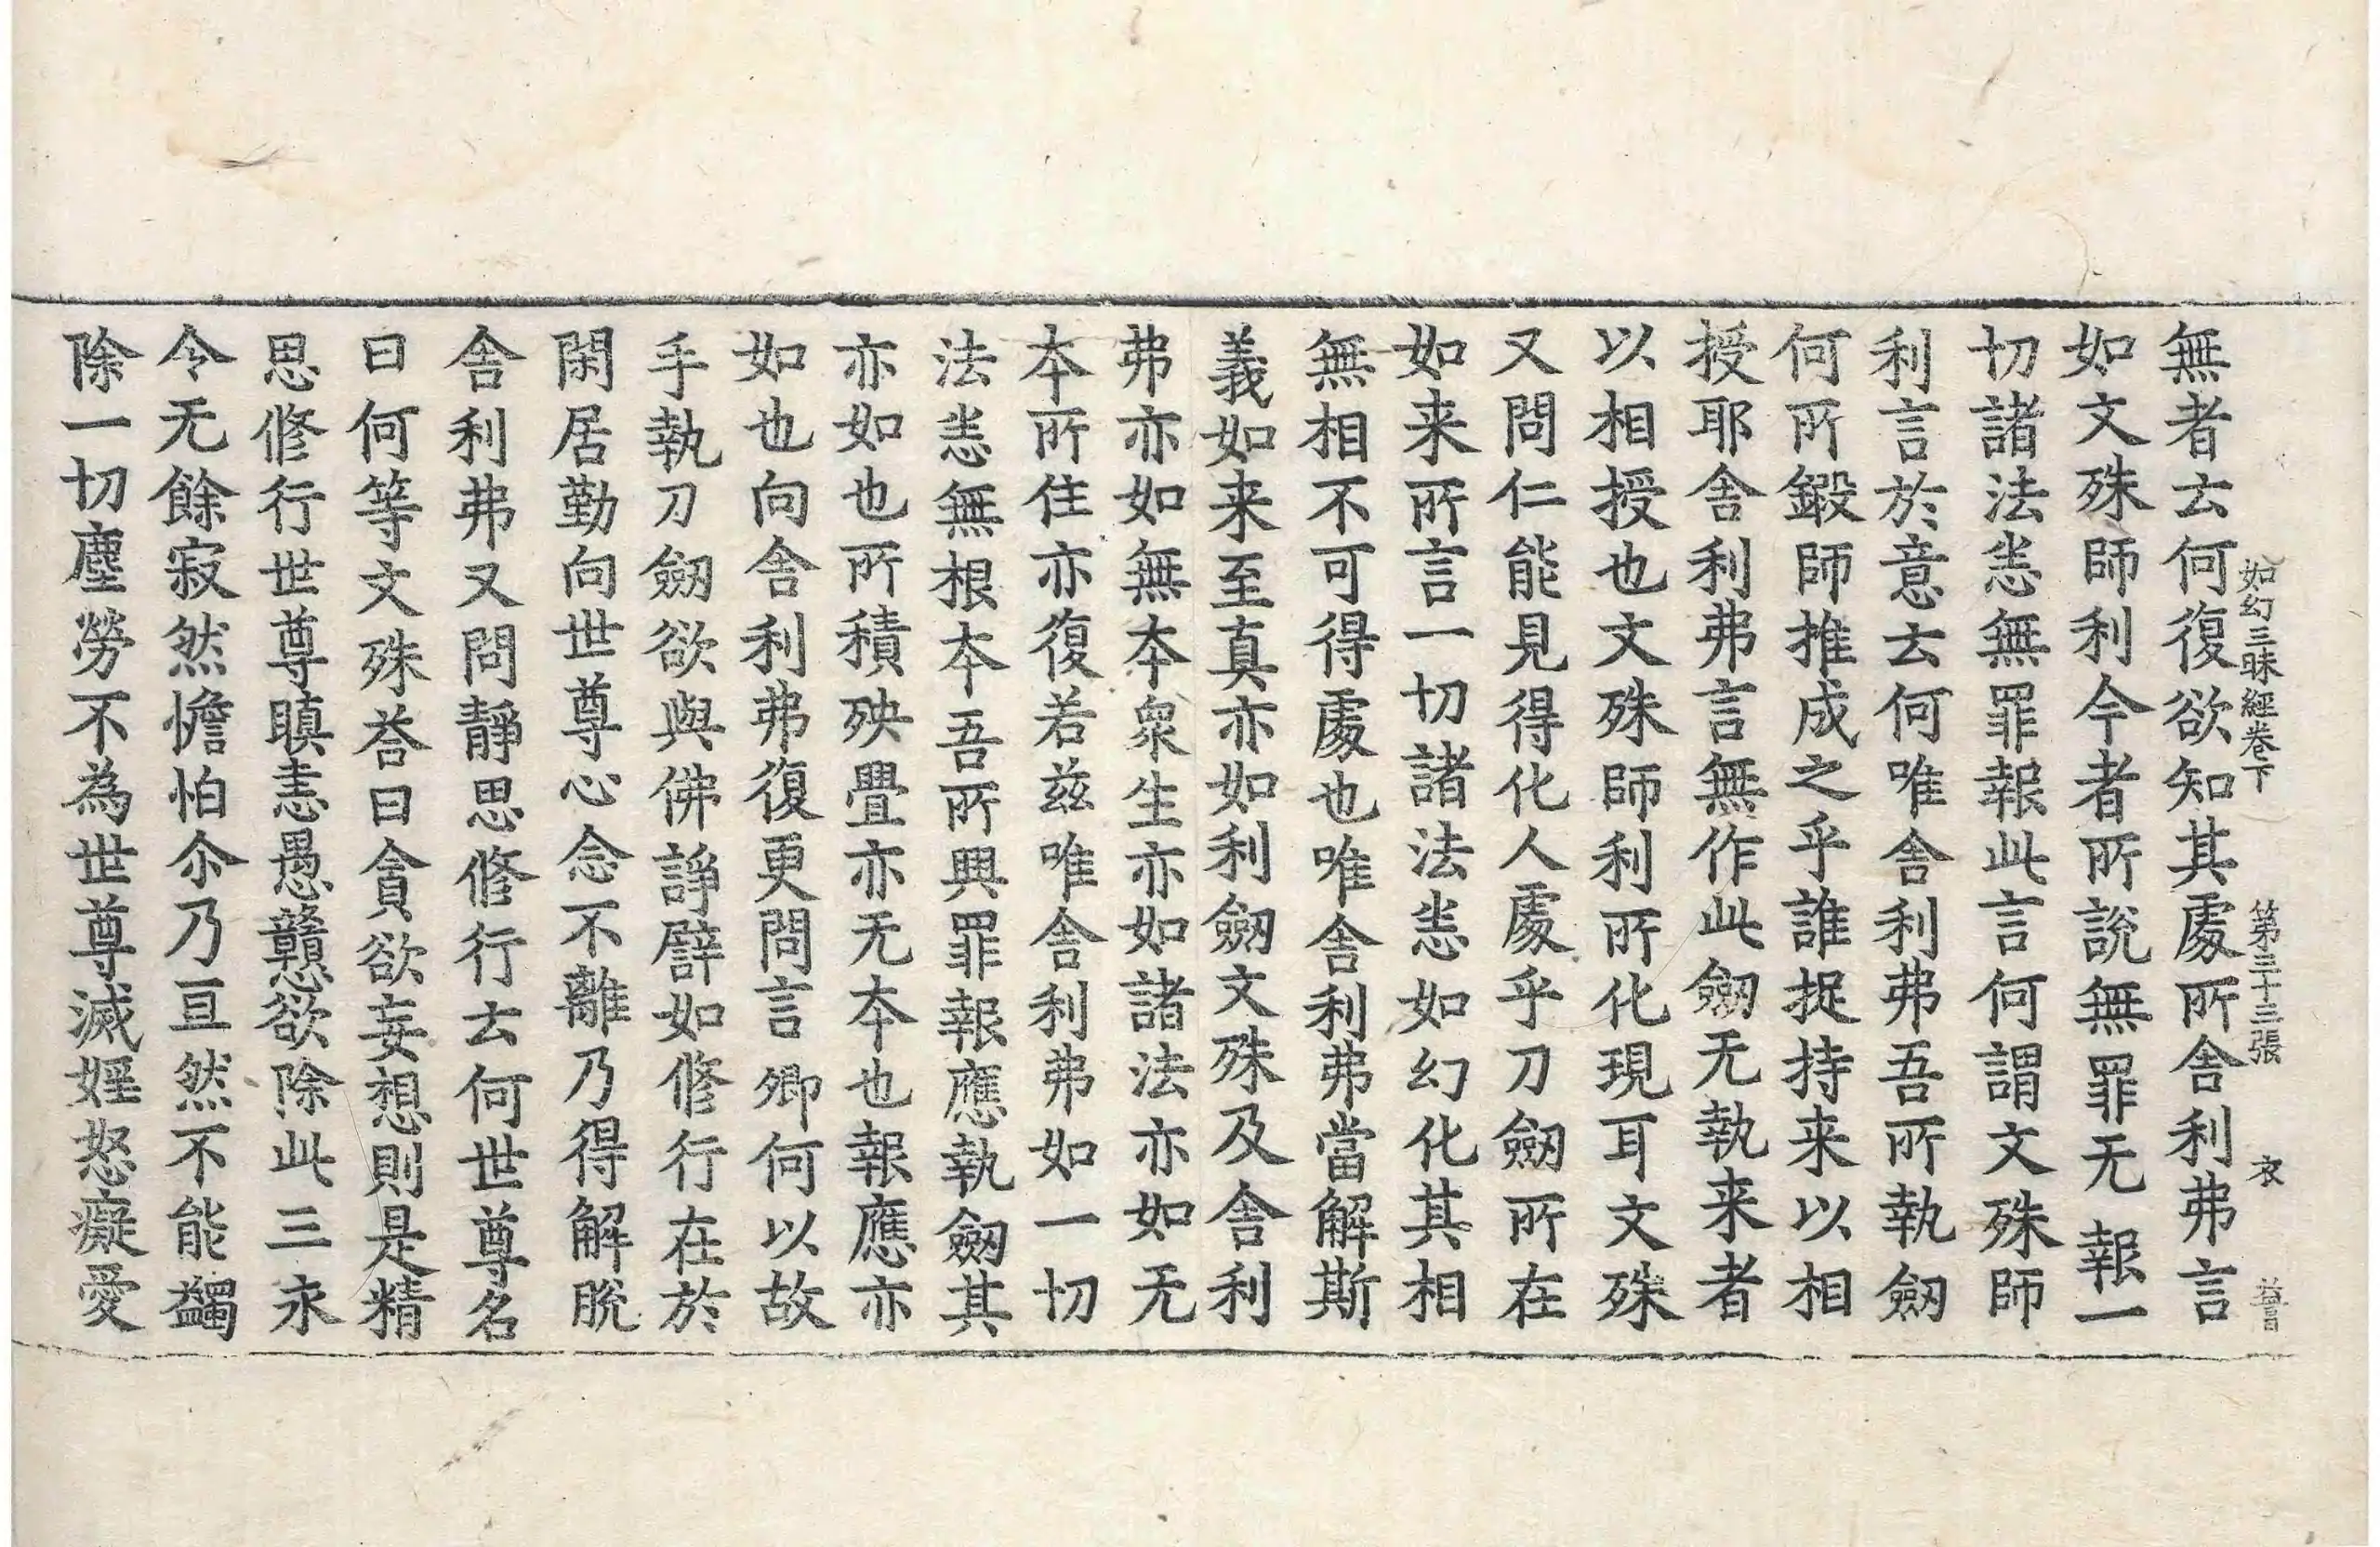 如幻三昧經卷下 第三十三張 衣
無者去何復欲知其處所舍利弗言
如文殊師利今者所說無罪无報一
切諸法恙無罪報此言何謂文殊師
利言於意去何唯舍利弗吾所執劒
何所鍛師推成之乎誰捉持来以相
授耶舍利弗言無作此劒无執来者
以相授也文殊師利所化現耳文殊
又問仁能見得化人處乎刀劒所在
如来所言一切諸法恙如幻化其相
無相不可得處也唯舍利弗當解斯
義如来至真亦如利劒文殊及舍利
弗亦如無夲衆生亦如諸法亦如无
夲所住亦復若兹唯舍利弗如一切
法恙無根夲吾所興罪報應執劒其
亦如也所積殃疊亦无夲也報應亦
如也向舍利弗復更問言卿何以故
手執刀劒欲與佛諍譬如修行在於
閑居勤向世尊心念不離乃得解脫
舍利弗又問靜思修行去何世尊名
曰何等文殊荅曰貪欲妄想則是精
思修行世尊瞋恚愚戇欲除此三永
令无餘寂然憺怕尒乃亘然不能蠲
除一切塵勞不為世尊滅婬怒癡愛